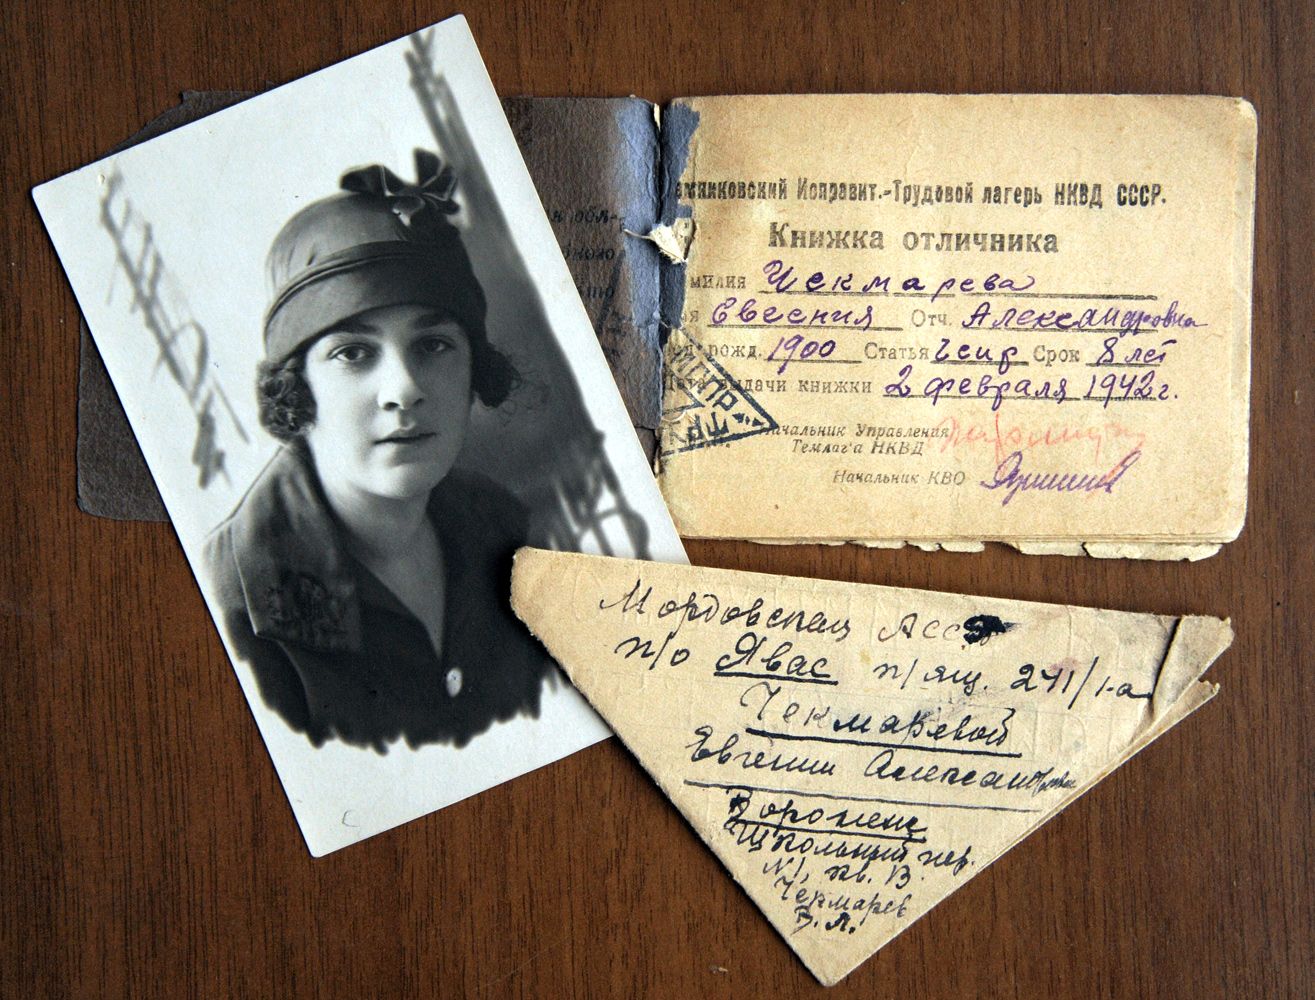 емниковский Исправит.-Трудовой лагерь НКВД СССР.
Книжка отличника
милия Чекмарева
я Евгения Отч. Александровна
рожд. 1900 Статья Чсир Срок 8 лет
Дата выдачи книжки 2 февраля 1942 г.
ачальник Управления
Темлаг'а НКВД
Начальник КВО
обя-
Мордовская АССР
п/о Явас п/ящ. 241/1-а
Чекмаревой
Евгении Александровне
Воронеж
Школьный пер.
N 1, кв. В.
Чекмарев
В. А.